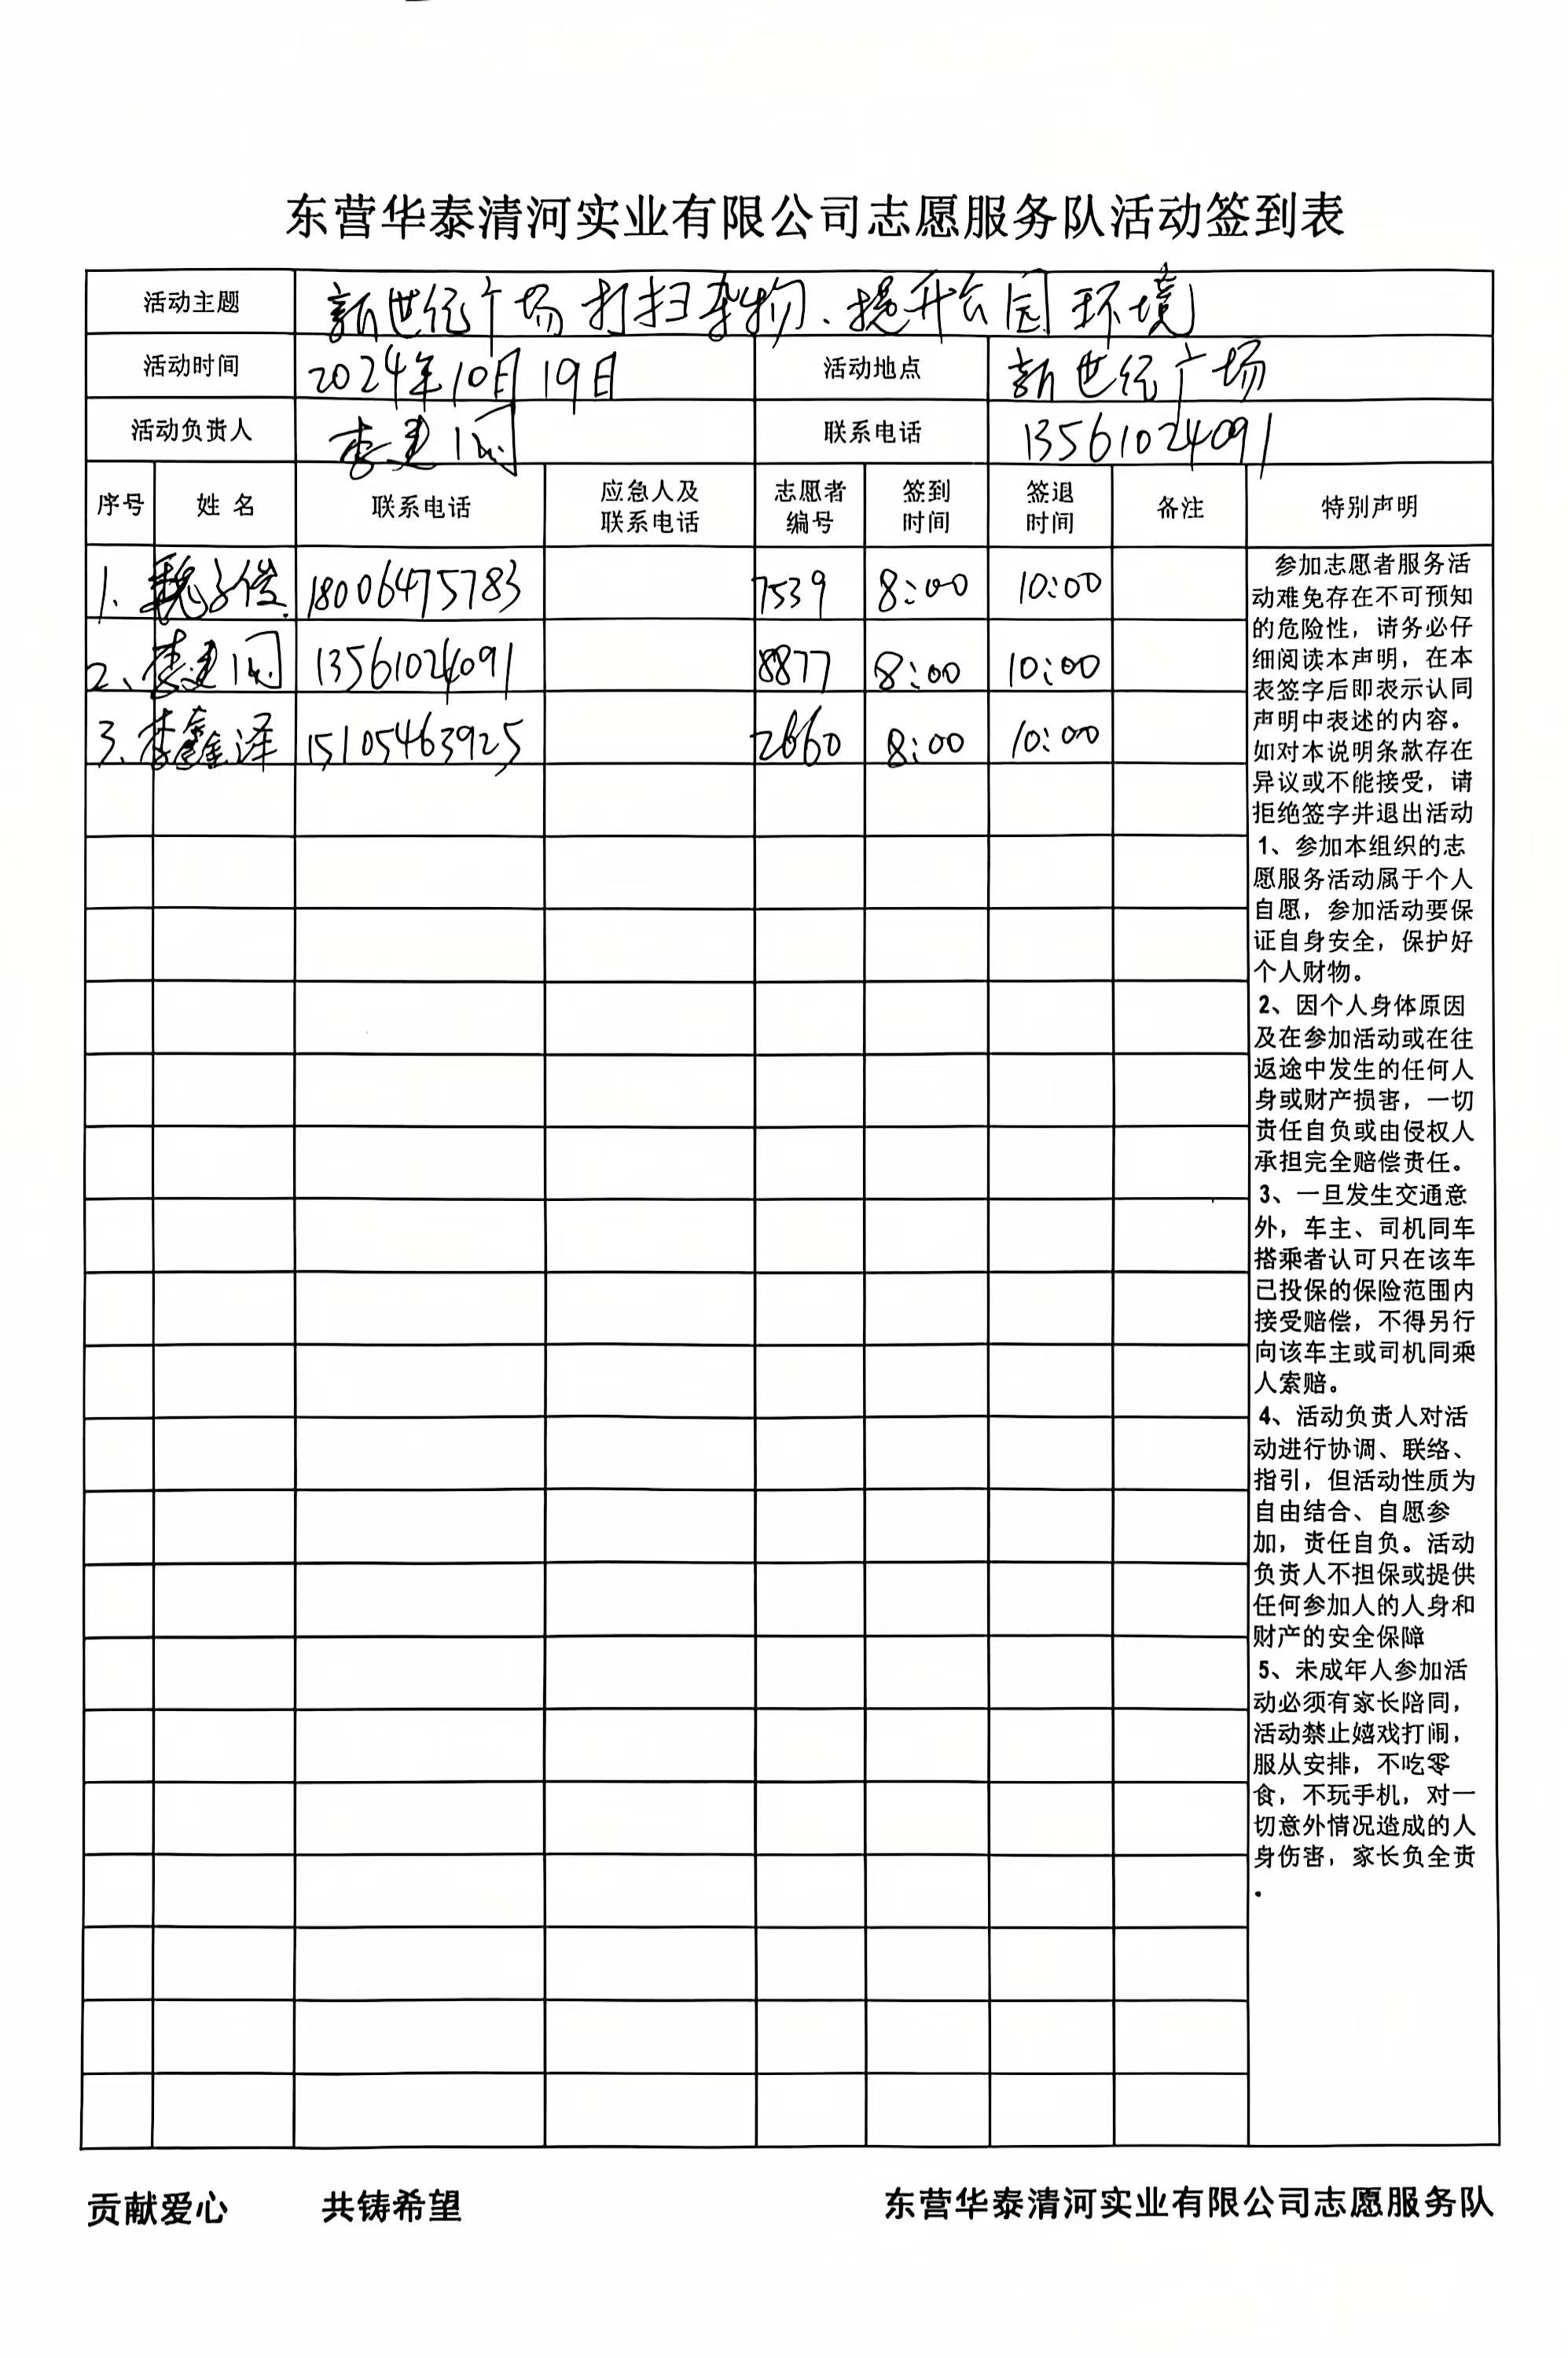 东营华泰清河实业有限公司志愿服务队活动签到表
活动主题 新世纪广场打扫杂物、提升公园环境
活动时间 2024年10月19日 活动地点 新世纪广场
活动负责人 李建 联系电话 13561024091
序号 姓名 联系电话 应急人及联系电话 志愿者编号 签到时间 签退时间 备注 特别声明
1、魏子俊 18006475783 7539 8:00 10:00
2、李建 13561024091 8877 8:00 10:00
3、李鑫泽 15105463925 2660 8:00 10:00
参加志愿者服务活
动难免存在不可预知
的危险性，请务必仔
细阅读本声明，在本
表签字后即表示认同
声明中表述的内容。
如对本说明条款存在
异议或不能接受，请
拒绝签字并退出活动
1、参加本组织的志
愿服务活动属于个人
自愿，参加活动要保
证自身安全，保护好
个人财物。
2、因个人身体原因
及在参加活动或在往
返途中发生的任何人
身或财产损害，一切
责任自负或由侵权人
承担完全赔偿责任。
3、一旦发生交通意
外，车主、司机同车
搭乘者认可只在该车
已投保的保险范围内
接受赔偿，不得另行
向该车主或司机同乘
人索赔。
4、活动负责人对活
动进行协调、联络、
指引，但活动性质为
自由结合、自愿参
加，责任自负。活动
负责人不担保或提供
任何参加人的人身和
财产的安全保障
5、未成年人参加活
动必须有家长陪同，
活动禁止嬉戏打闹，
服从安排，不吃零
食，不玩手机，对一
切意外情况造成的人
身伤害，家长负全责
。
贡献爱心 共铸希望 东营华泰清河实业有限公司志愿服务队